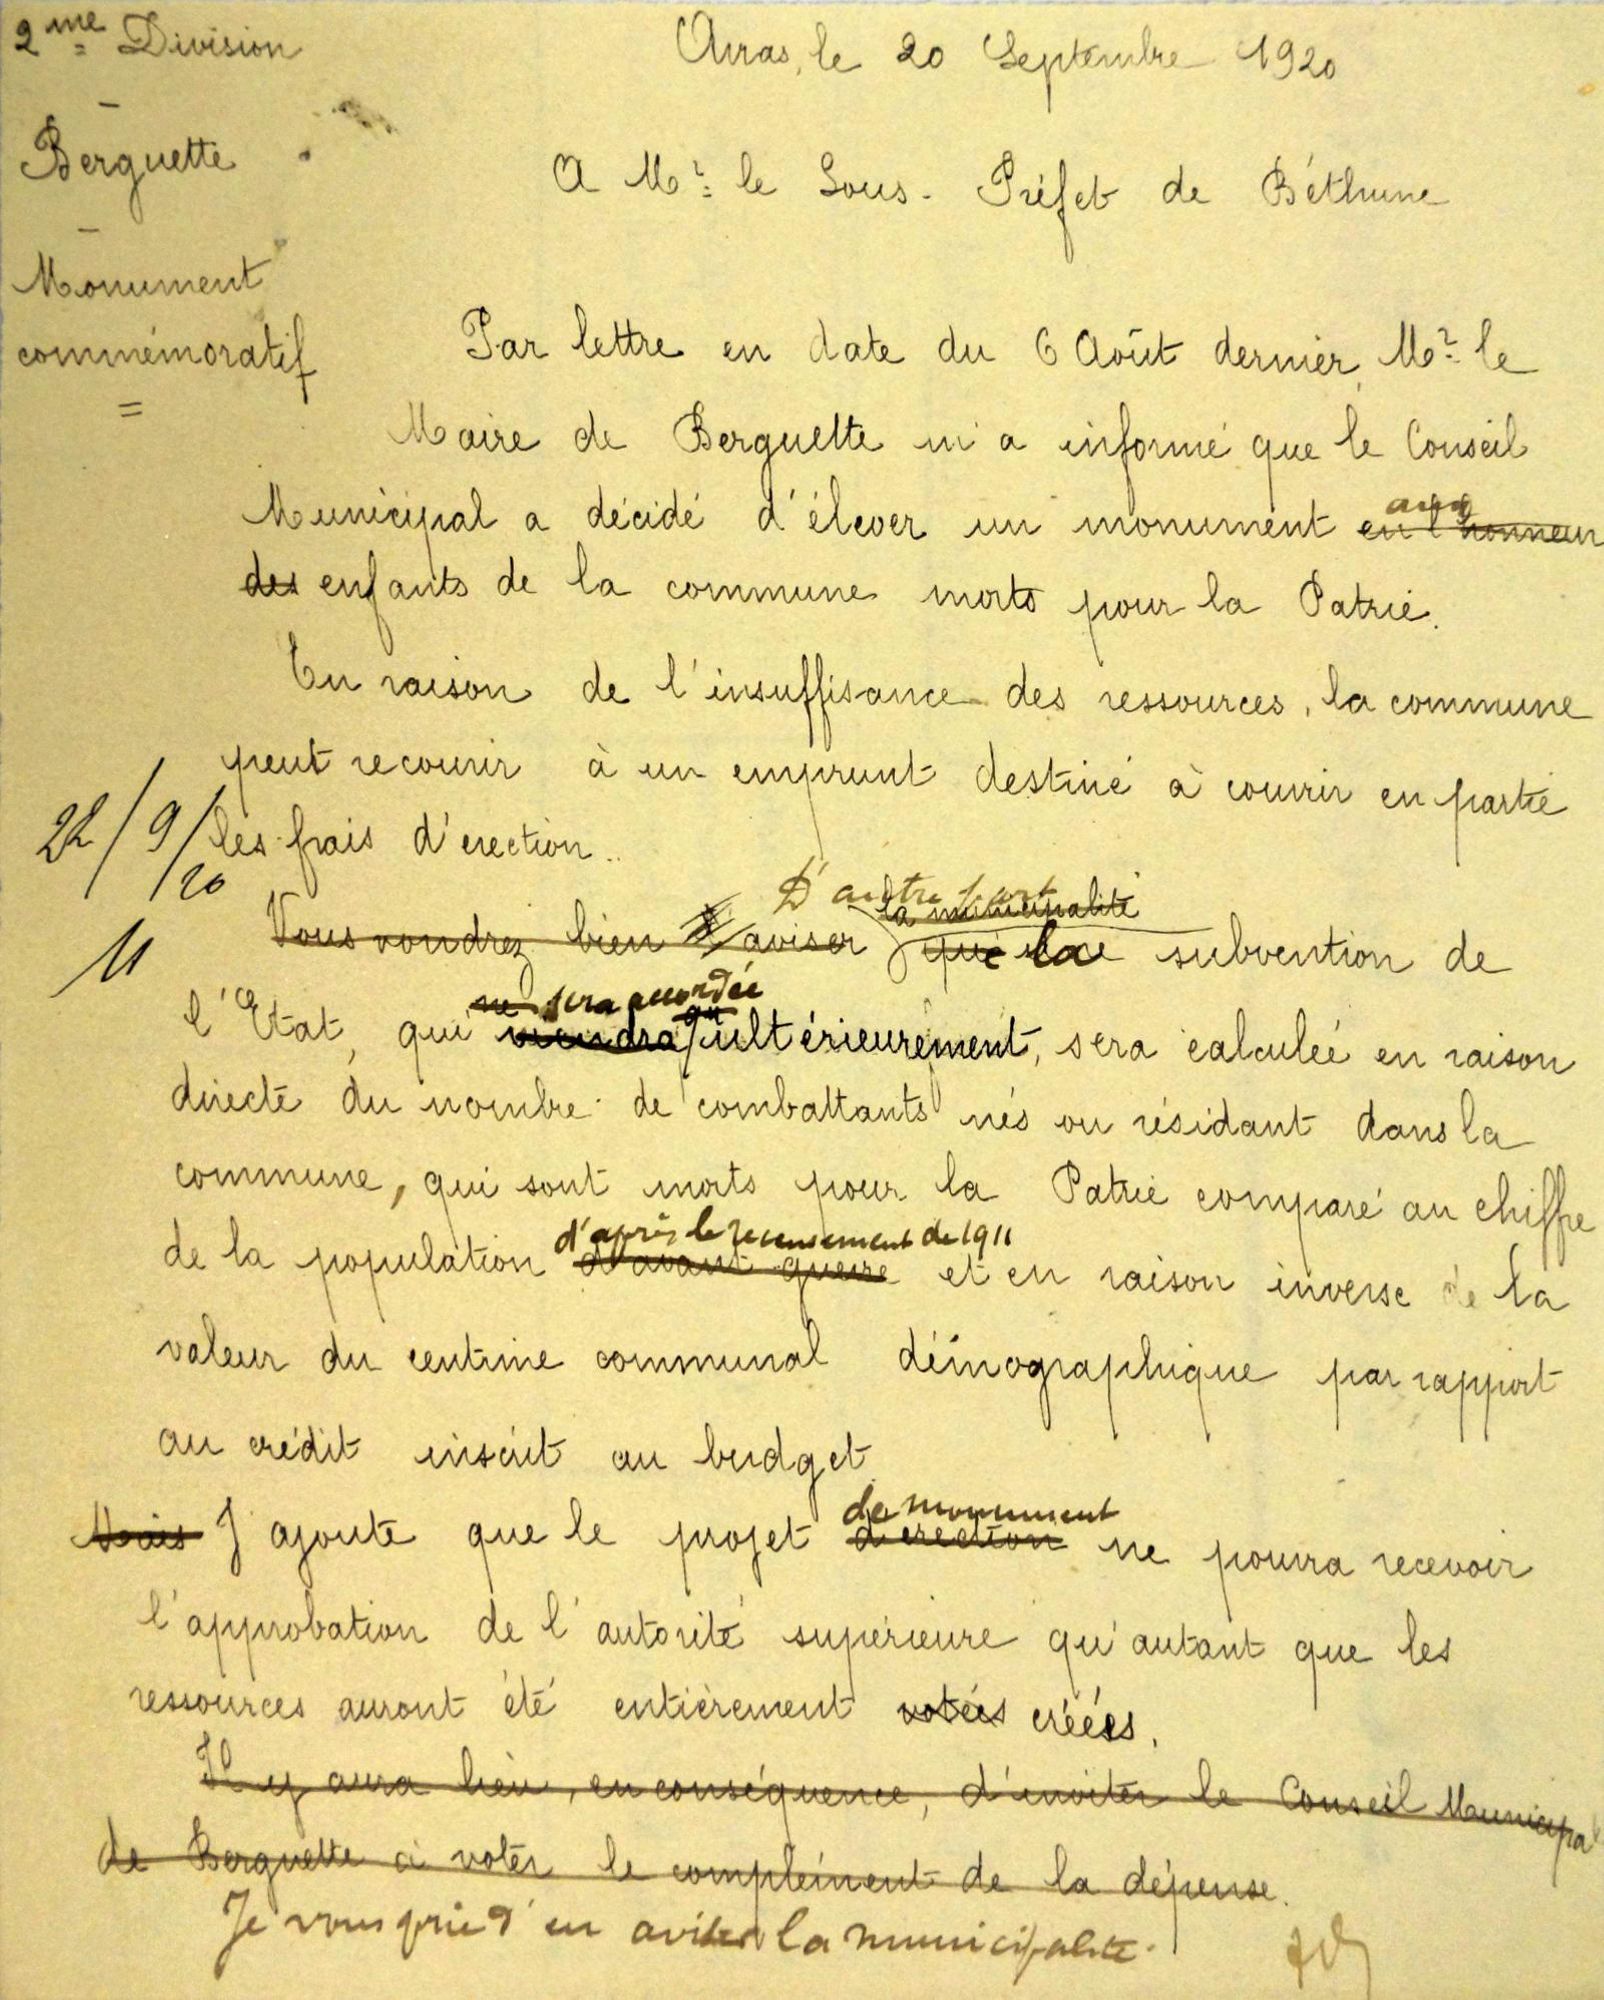 2me Division
Arras, le 20 Septembre 1920
Berguette
A Mr le Sous-Préfet de Béthune
Monument
commémoratif
Par lettre en date du 6 Août dernier, Mr le
Maire de Berguette m'a informé que le Conseil
Municipal a décidé d'élever un monument en l'honneur
aux
des enfants de la commune morts pour la Patrie.
En raison de l'insuffisance des ressources, la commune
peut recourir à un emprunt destiné à couvrir en partie
les frais d'erection.
22/9/20
D'autre part
la municipalité
Vous voudrez bien aviser que la subvention de
ne sera accordée
qu'
l'Etat, qui viendra ultérieurement, sera calculée en raison
directe du nombre de combattants nés ou résidant dans la
commune, qui sont morts pour la Patrie comparé au chiffre
d'après le recensement de 1911
de la population d'avant-guerre et en raison inverse de la
valeur du centime communal démographique par rapport
au crédit inscrit au budget
de monument
Mais J'ajoute que le projet d'erection ne pourra recevoir
l'approbation de l'autorité supérieure qu'autant que les
ressources auront été entièrement votées créées.
Il y aura lieu, en conséquence, d'inviter le Conseil Municipal
de Berguette à voter le complément de la dépense.
Je vous prie d'en aviser la municipalité.